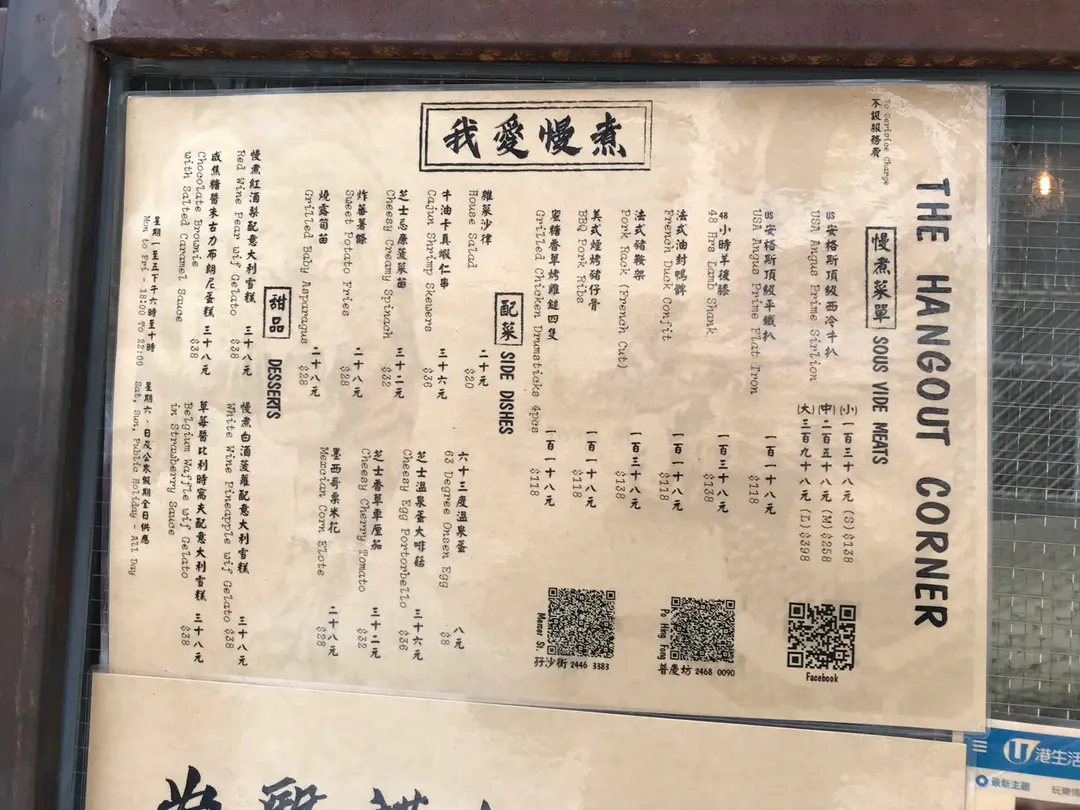 THE HANGOUT CORNER
No Serivice Charge
不設服務費
我愛慢煮
慢煮菜單 SOUS VIDE MEATS
US 安格斯頂級西冷牛扒
USA Angus Prime Sirlion
(小) 一百三十八元 (S) $138
(中) 二百五十八元 (M) $258
(大) 三百九十八元 (L) $398
US 安格斯頂級平鐵扒 一百一十八元
USA Angus Prime Flat Iron $118
48 小時羊後膝 一百三十八元
48 Hrs Lamb Shank $138
法式油封鴨髀 一百一十八元
French Duck Confit $118
法式豬鞍架 一百三十八元
Pork Rack (French Cut) $138
美式煙烤豬仔骨 一百一十八元
BBQ Pork Ribs $118
蜜糖香草烤雞鎚四隻 一百一十八元
Grilled Chicken Drumsticks 4pcs $118
配菜 SIDE DISHES
雜菜沙律 二十元
House Salad $20
牛油卡真蝦仁串 三十六元
Cajun Shrimp Skewers $36
芝士忌廉菠菜苗 三十二元
Cheesy Creamy Spinach $32
炸蕃薯條 二十八元
Sweet Potato Fries $28
燒露荀苗 二十八元
Grilled Baby Asparagus $28
六十三度溫泉蛋 八元
63 Degree Onsen Egg $8
芝士溫泉蛋大啡菇 三十六元
Cheesy Egg Portorbello $36
芝士香草車厘茄 三十二元
Cheesy Cherry Tomato $32
墨西哥粟米花 二十八元
Mexcian Corn Elote $28
甜品 DESSERTS
慢煮紅酒梨配意大利雪糕 三十八元
Red Wine Pear wif Gelato $38
咸焦糖醬朱古力布朗尼蛋糕 三十八元
Chocolate Brownie $38
with Salted Caramel Sauce
慢煮白酒菠蘿配意大利雪糕 三十八元
White Wine Pineapple wif Gelato $38
草莓醬比利時窩夫配意大利雪糕 三十八元
Belgium Waffle wif Gelato $38
in Strawberry Sauce
星期一至五下午六時至十時
Mon to Fri - 18:00 To 22:00
星期六，日及公眾假期全日供應
Sat, Sun, Public Holiday - All Day
Facebook
Po Hing Fong
普慶坊 2468 0090
Mercer St.
孖沙街 2446 3383
港生活
最新主題